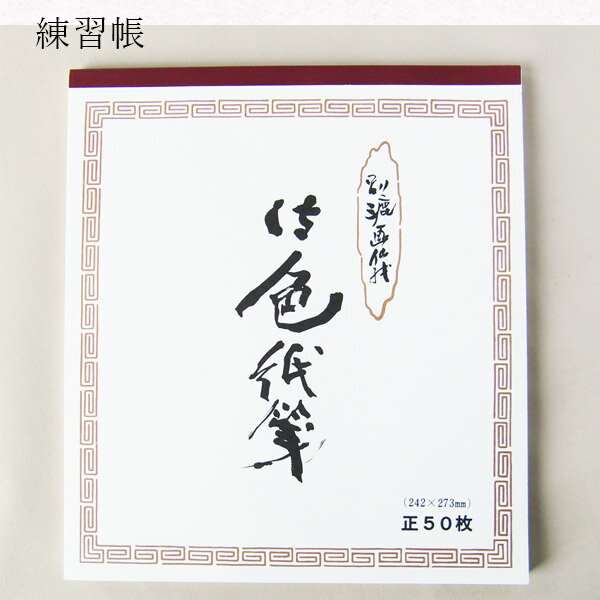 練習帳
別漉画仙紙
仿色紙箋
(242×273mm)
正50枚